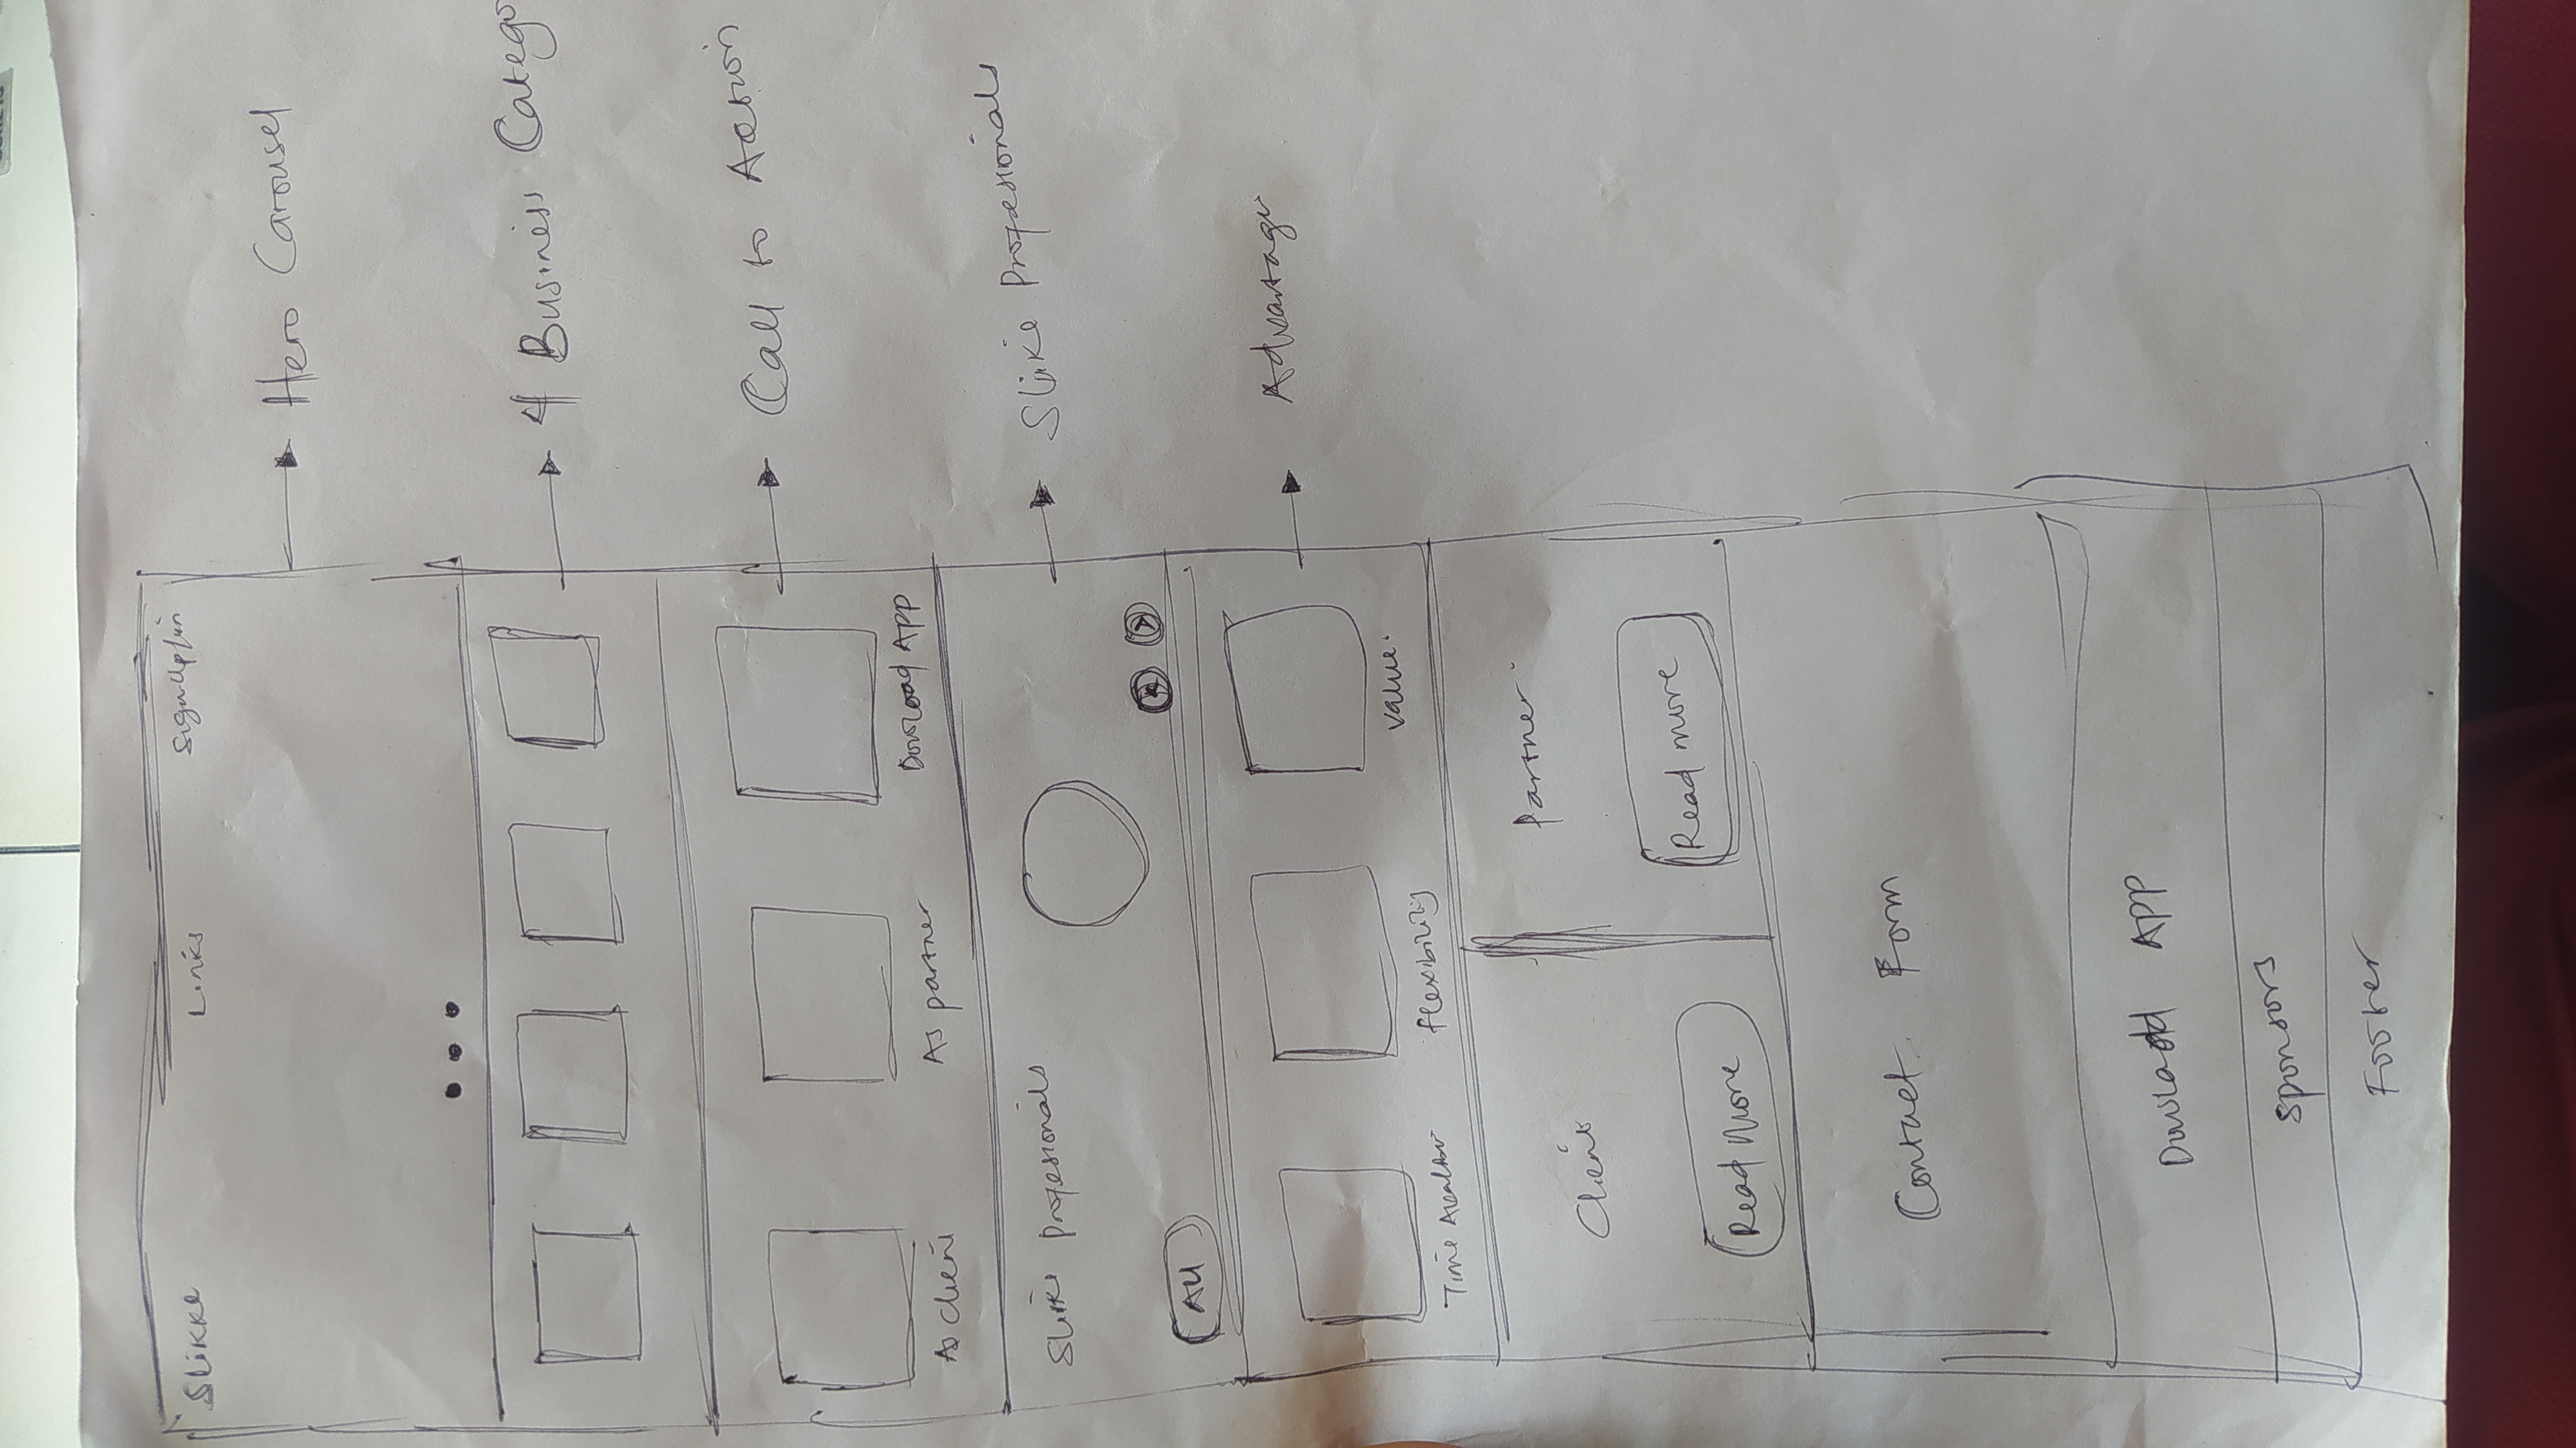 Slikke Links SignUp/in
Hero Carousel
4 Business Catego
Call to Action
As client As partner Download App
Slike Profesionals
Slike Profesionals
All
Advantage
Time Flexibility Value.
Client Partner.
Read More Read more
Contact Form
Download App
Sponsors
Footer